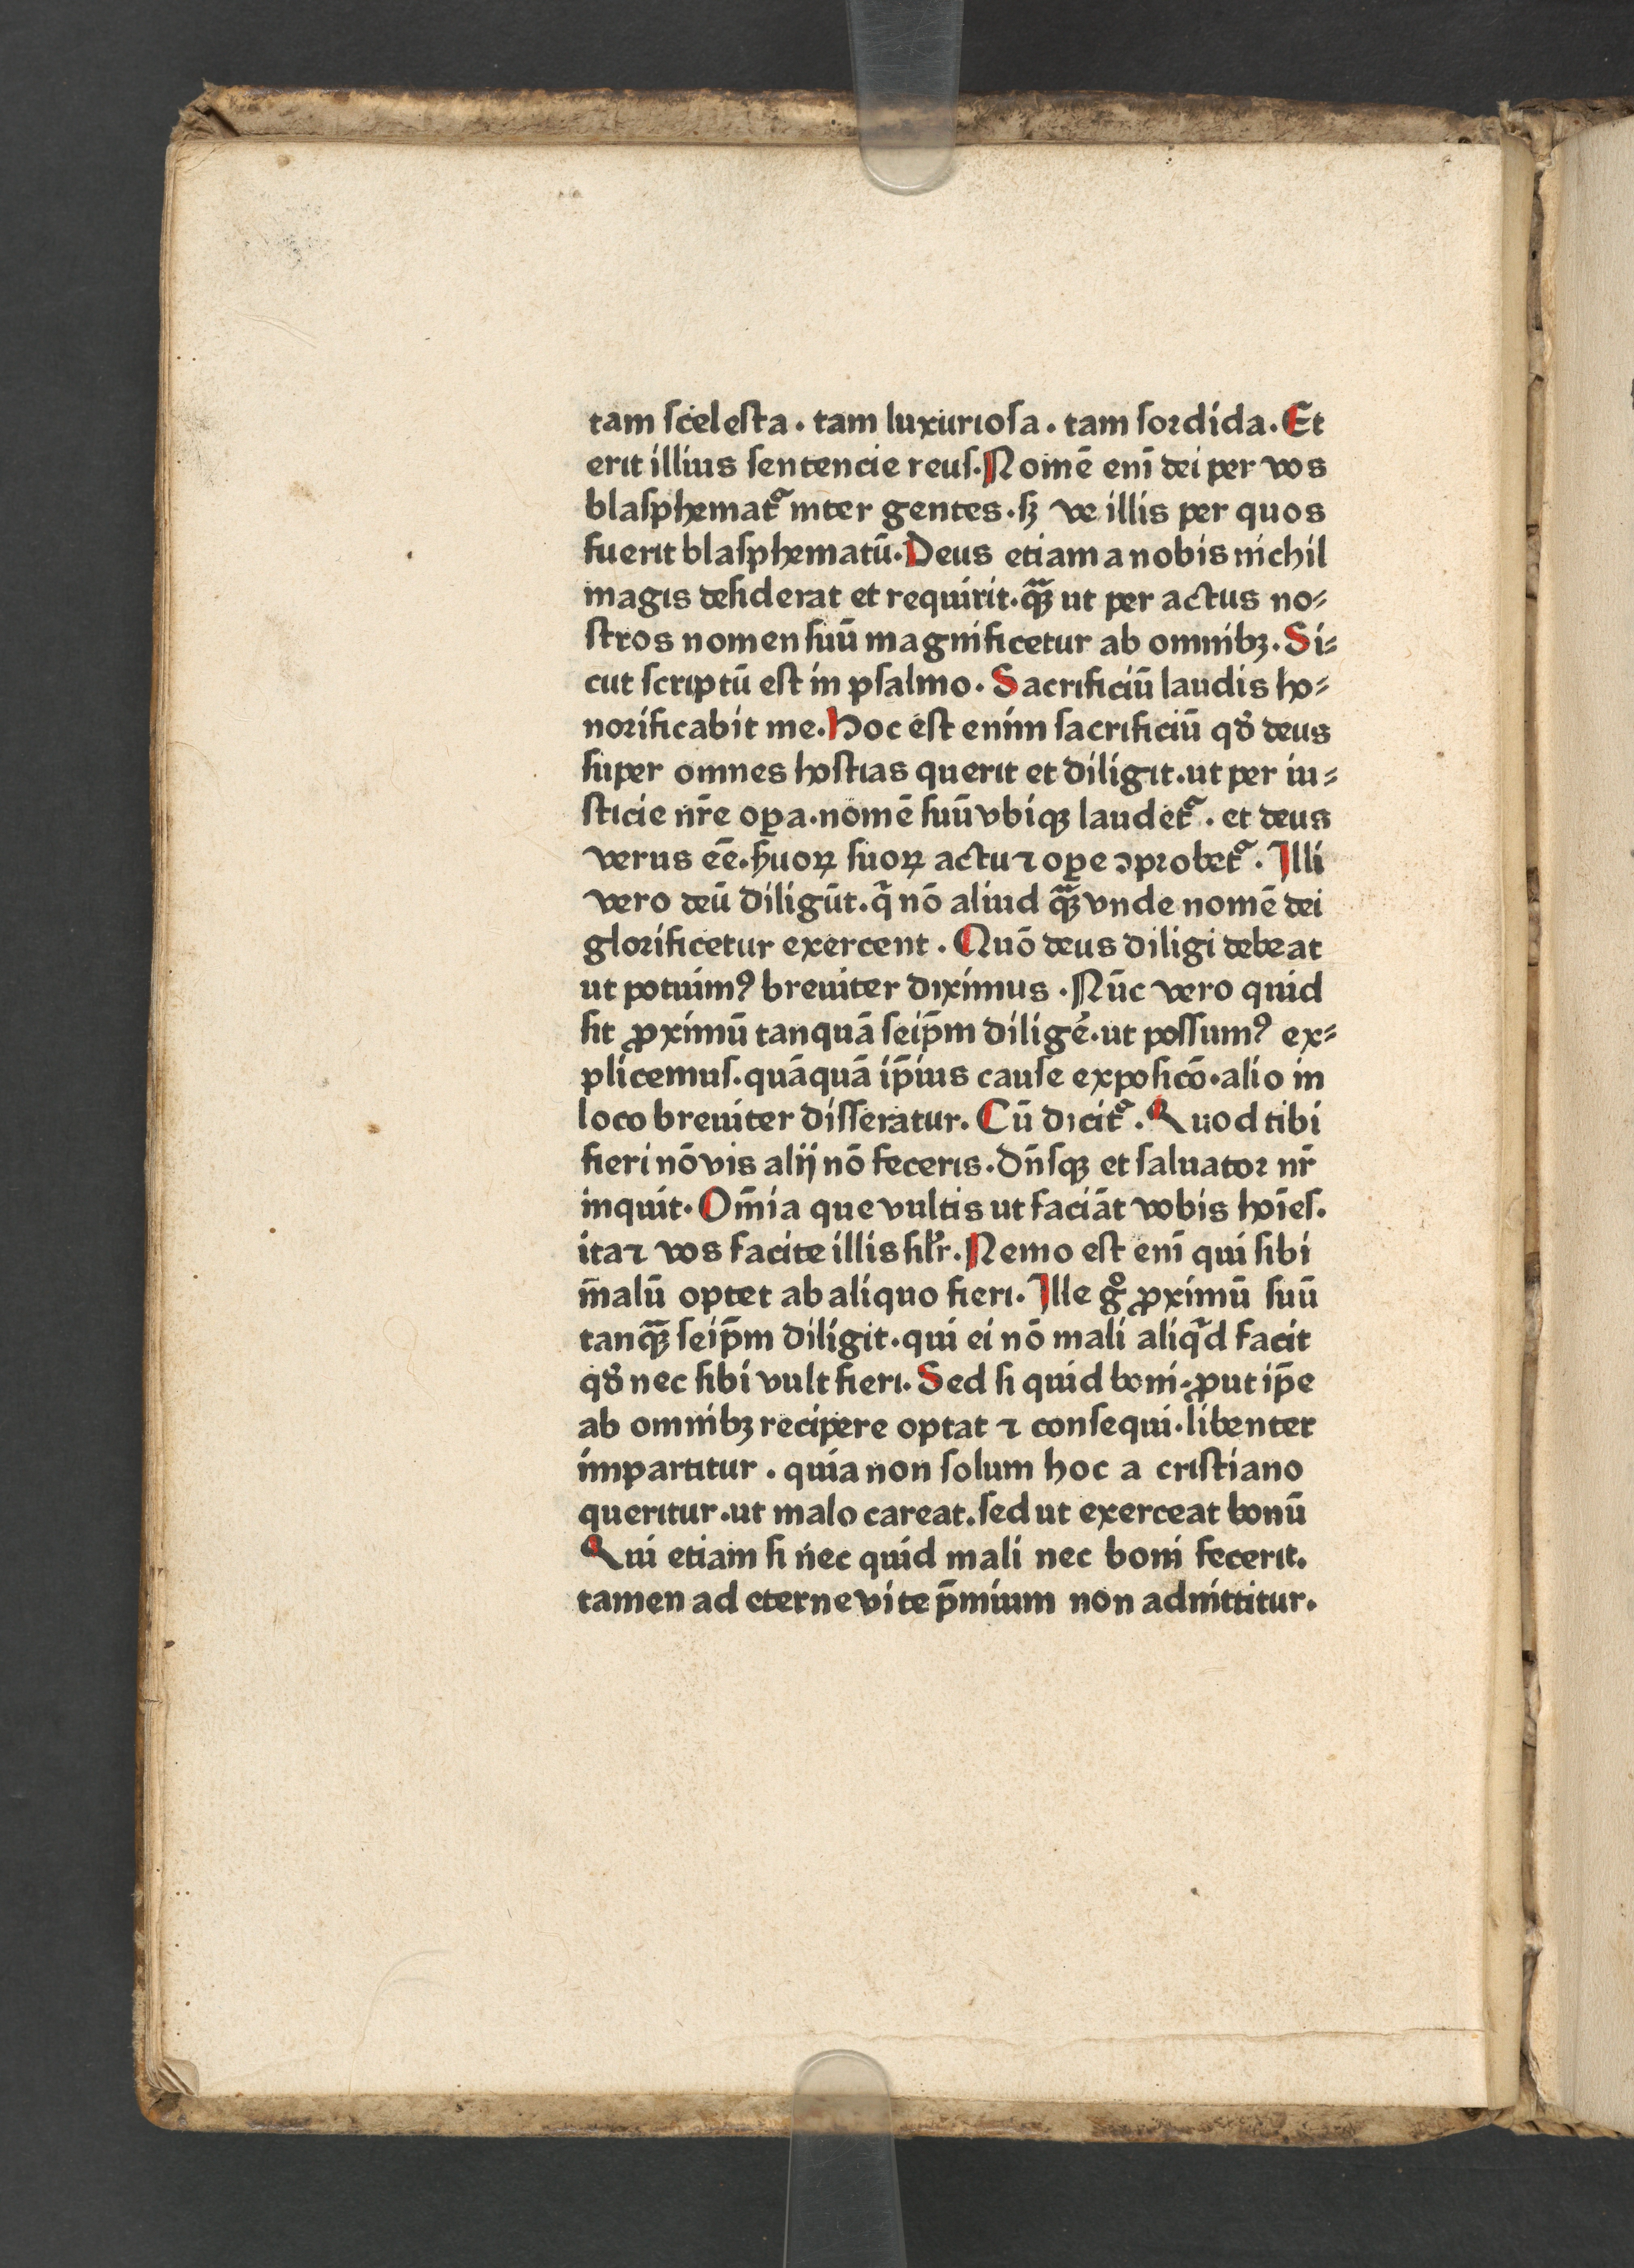 tam ſceleſta . tam luxurioſa . tam ſoꝛdida . Et
erit illius ſentencie reuſ . Nomē enī dei per vos
blaſphematᷣ inter gentes . ſꝫ ve illis per quos
fuerit blaſphematū . Deus etiam a nobis nichil
magis deſiderat et requirit . qᷓꝫ ut per actus no⸗
ſtros nomen ſuū magnificetur ab omnibꝫ . Si⸗
cut ſcriptū eſt in pſalmo . Sacrificiū laudis ho⸗
noꝛificabit me . Hoc eſt enim ſacrificiū qđ deus
ſuper omnes hoſtias querit et diligit . ut per iu⸗
ſticie nr̄e oꝑa . nomē ſuū vbiqꝫ laudetᷣ . et deus
verus eē . ẜuoꝝ ſuoꝝ actu ⁊ oꝑe ꝯpꝛobetᷣ . Illi
vero deū diligūt . q̄ nō aliud qᷓꝫ vnde nomē dei
gloꝛificetur exercent . Quō deus diligi debeat
ut potuimꝰ breuiter diximus . Nūc vero quid
ſit ꝓximū tanquā ſeip̄m diligē . ut poſſumꝰ ex⸗
plicemuſ . quāquā ip̄ius cauſe expoſicō . alio in
loco breuiter diſſeratur . Cū dicitᷣ . Quod tibi
fieri nō vis alij nō feceris . Dn̄ſqꝫ et ſaluatoꝛ nr̄
inquit . Om̄ia que vultis ut faciāt vobis hoīeſ .
ita ⁊ vos facite illis ſil̄r . Nemo eſt enī qui ſibi
m̄alū optet ab aliquo fieri . Ille gͦ ꝓximū ſuū
tanqᷓꝫ ſeip̄m diligit . qui ei nō mali aliqͥd facit
qđ nec ſibi vult fieri . Sed ſi quid boni . ꝓut ip̄e
ab omnibꝫ recipere optat ⁊ conſequi . libenter
impartitur . quia non ſolum hoc a criſtiano
queritur . ut malo careat . ſed ut exerceat bonū
Qui etiam ſi nec quid mali nec boni fecerit .
tamen ad eterne vite p̄mium non admittitur .